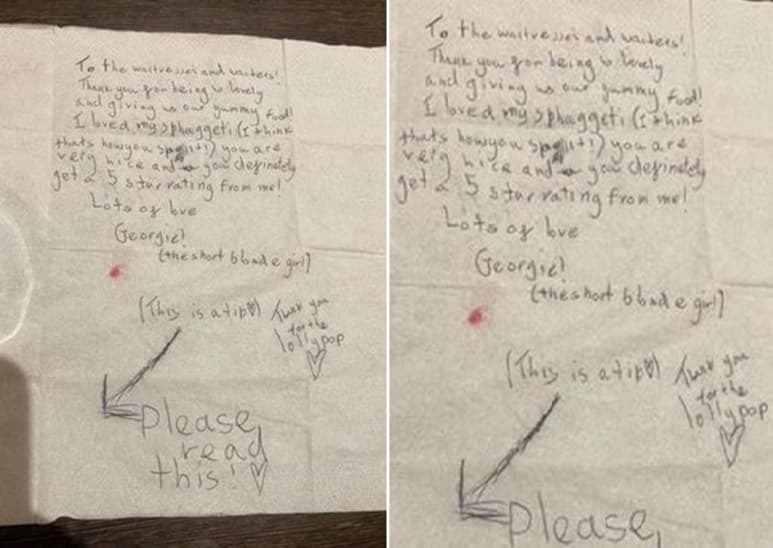 To the waitresses and waiters!
Thank you for being so lovely
and giving us our yummy food!
I loved my sphaggeti (I think
thats how you spellit!) you are
very nice and you definetely
get a 5 star rating from me!
Lots of love
Georgie!
(the short blonde girl)
(This is a tip♡)
Thank you
for the
lollypop
♡
Please,
read
this! ♡
To the waitresses and waiters!
Thank you for being so lovely
and giving us our yummy food!
I loved my sphaggeti (I think
thats how you spellit!) you are
very nice and you definetely
get a 5 star rating from me!
Lots of love
Georgie!
(the short blonde girl)
(This is a tip♡)
Thank you
for the
lollypop
♡
Please,